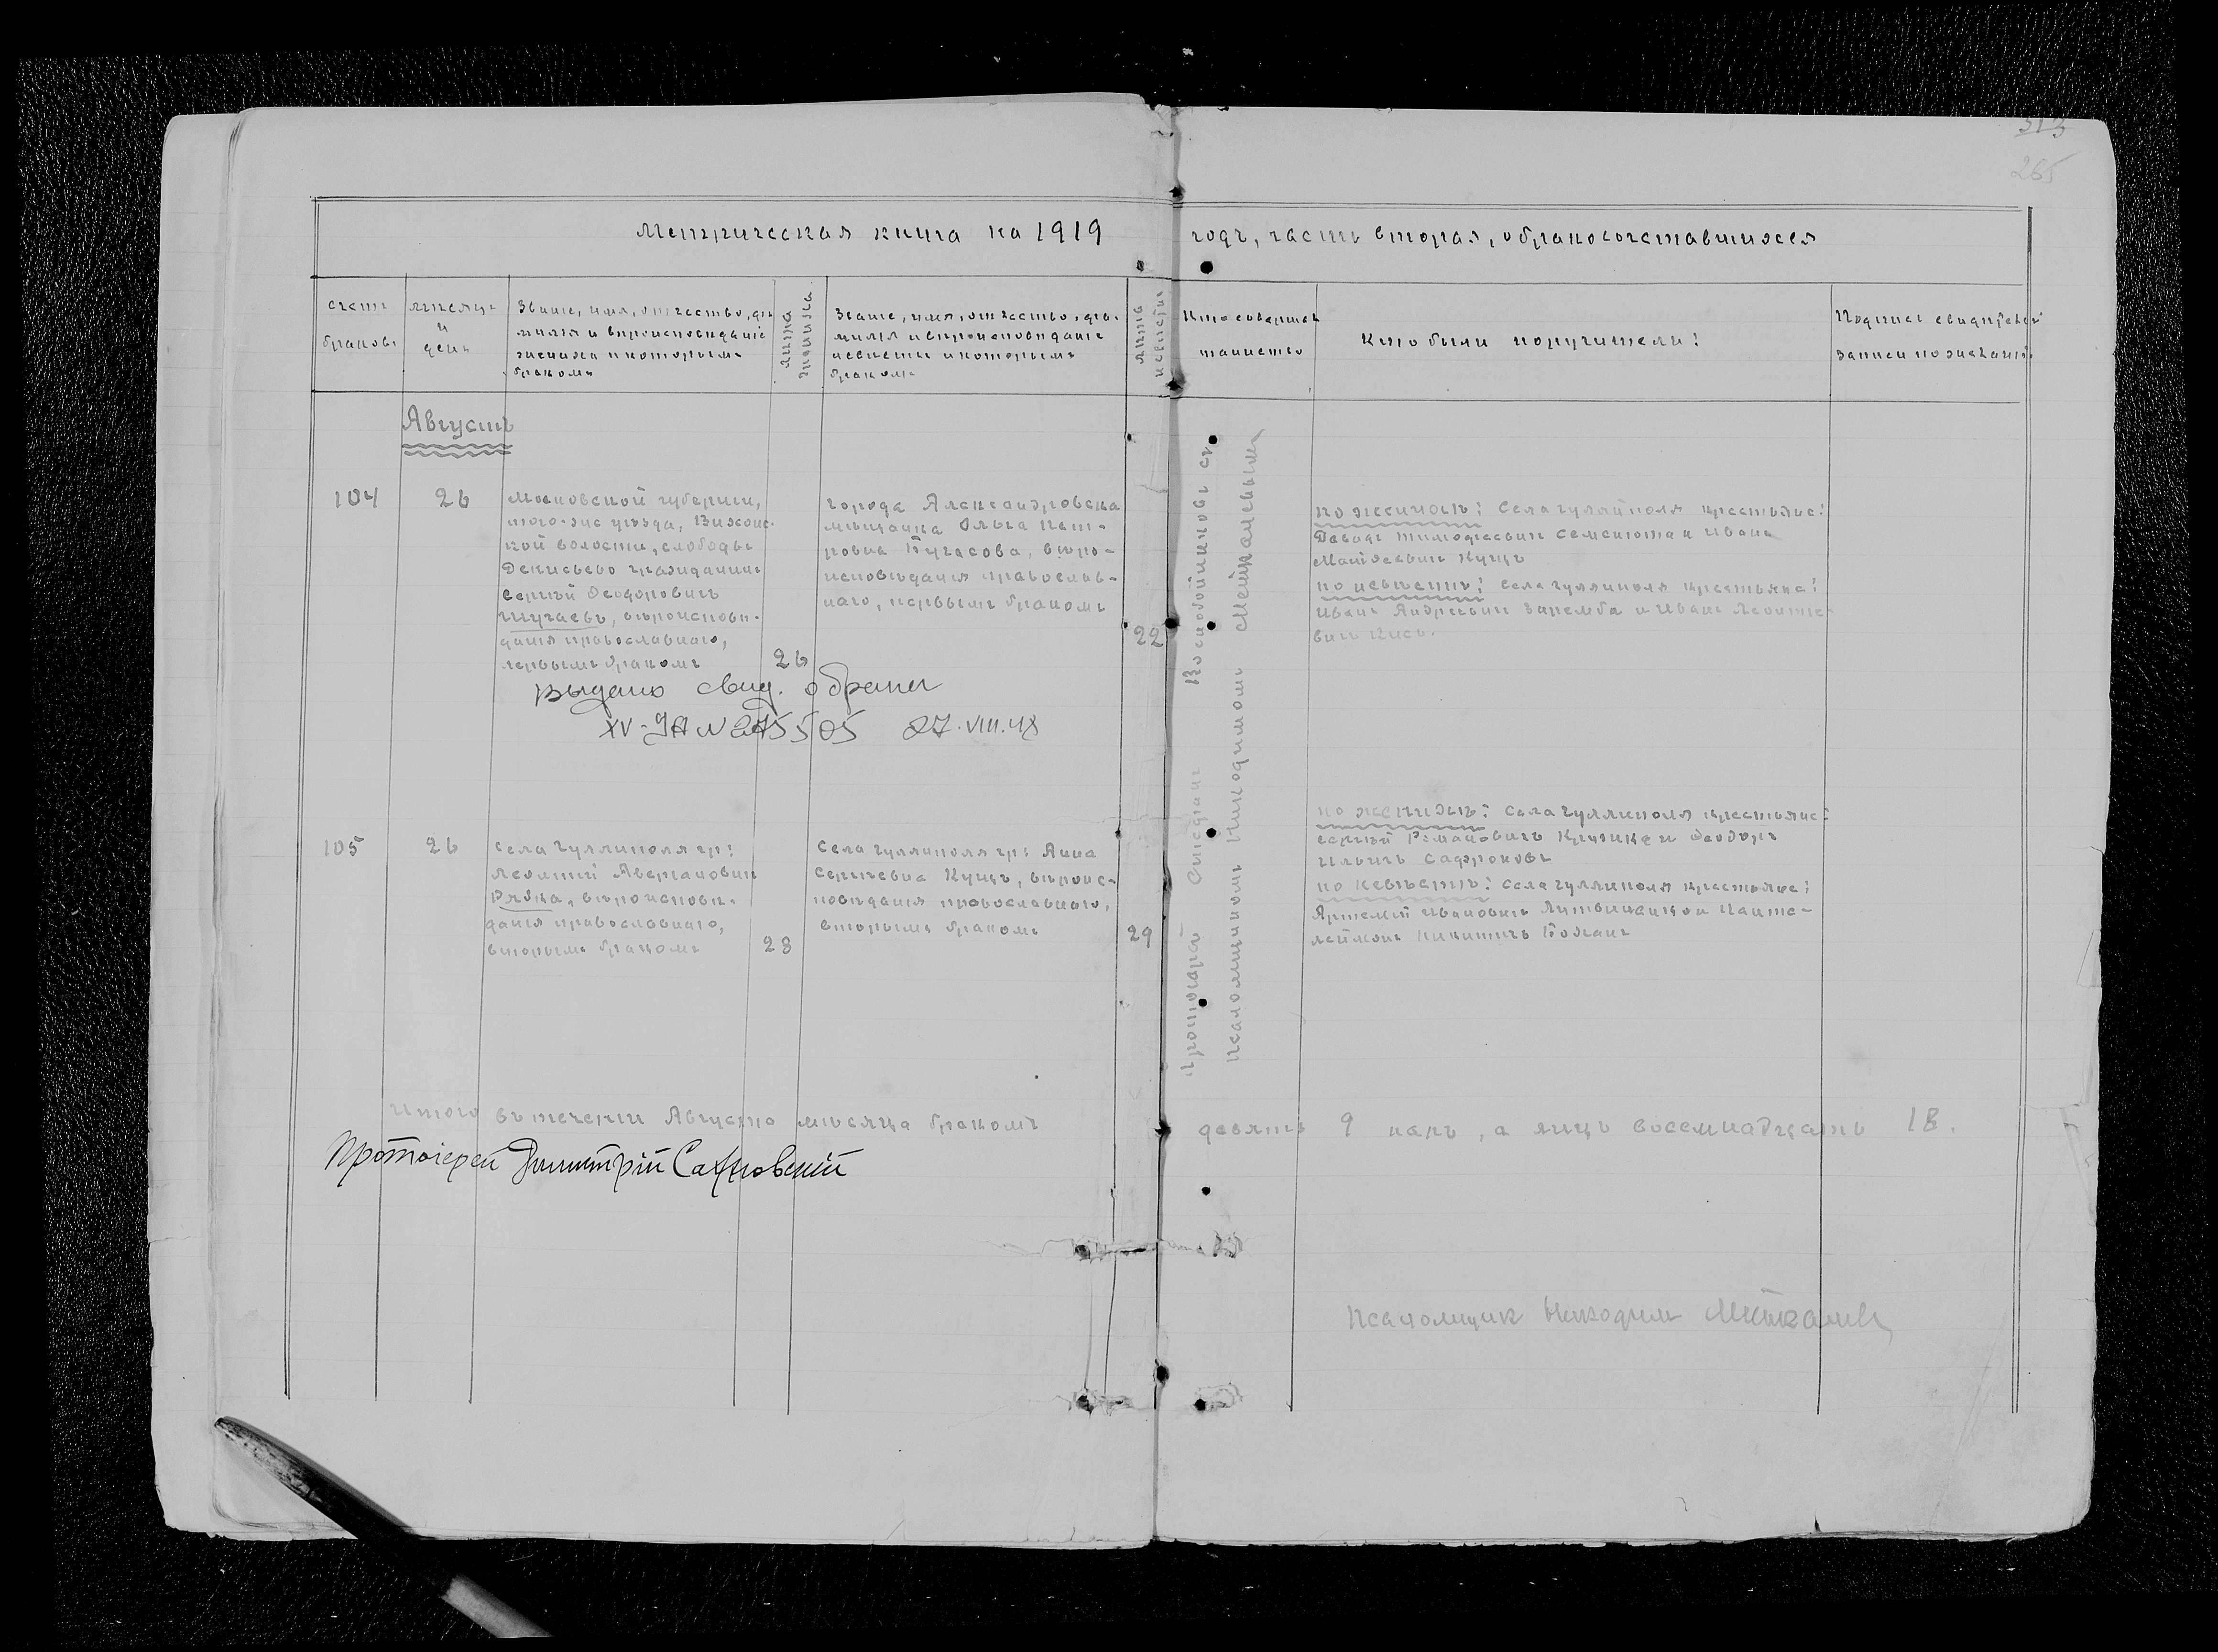 313
265
Метрическая книга на 1919
годъ, часть вторая, о бракосочетавшихся
счетъ
браковъ
мѣсяцъ
и
день
Званіе, имя, отчество, фа-
милія и вѣроисповѣданіе
жениха и которымъ
бракомъ
лѣта
жениха
Званіе, имя, отчество, фа-
милія и вѣроисповѣданіе
невѣсты и которымъ
бракомъ
лѣта
невѣсты
Кто совершал
таинство
Кто были поручители:
Подписи свидѣтелей
записи по желанію
Августъ
104
26
Московской губерніи,
того-же уѣзда,
кой волости, слободы
Денисьево гражданинъ
Сергѣй Феодоровичъ
Шугаевъ, вѣроисповѣ-
данія православнаго,
первымъ бракомъ
26
города Александровска
мѣщанка Ольга Пет-
ровна Бугасова, вѣро-
исповѣданія православ-
наго, первымъ бракомъ
22
по женихѣ: Села Гуляйполя крестьяне:
Давидъ Тимофеевич Семенюта и Иванъ
Матфеевич Куцъ
по невѣстѣ: Села Гуляйполя крестьяне:
Иванъ Андреевич Заремба и Иванъ Леонтье-
вичъ Кись.
Выдано свид. о браке
XV-ЯА N 275505 27.VIII.48
105
26
Села Гуляйполя гр:
Леонтій Аверкіевич
Рябка, вѣроисповѣ-
данія православнаго,
вторымъ бракомъ
28
Села Гуляйполя гр: Анна
Сергѣевна Куцъ, вѣроис-
повѣданія православнаго,
вторымъ бракомъ
29
по женихѣ: Села Гуляйполя крестьяне:
Сергѣй Романовичъ и Феодоръ
Ильичъ Сафроновъ
по невѣстѣ: Села Гуляйполя крестьяне:
Артемій Ивановичъ и Панте-
леймонъ Никитичъ Божанъ
Протоіерей Стефанъ Воскобойниковъ съ
псаломщикомъ Никодимомъ
Итого въ теченіи Августа мѣсяца бракомъ
девять 9 паръ, а лицъ восемнадцать 18.
Протоіерей Димитрій Сахновскій
Псаломщик Никодим